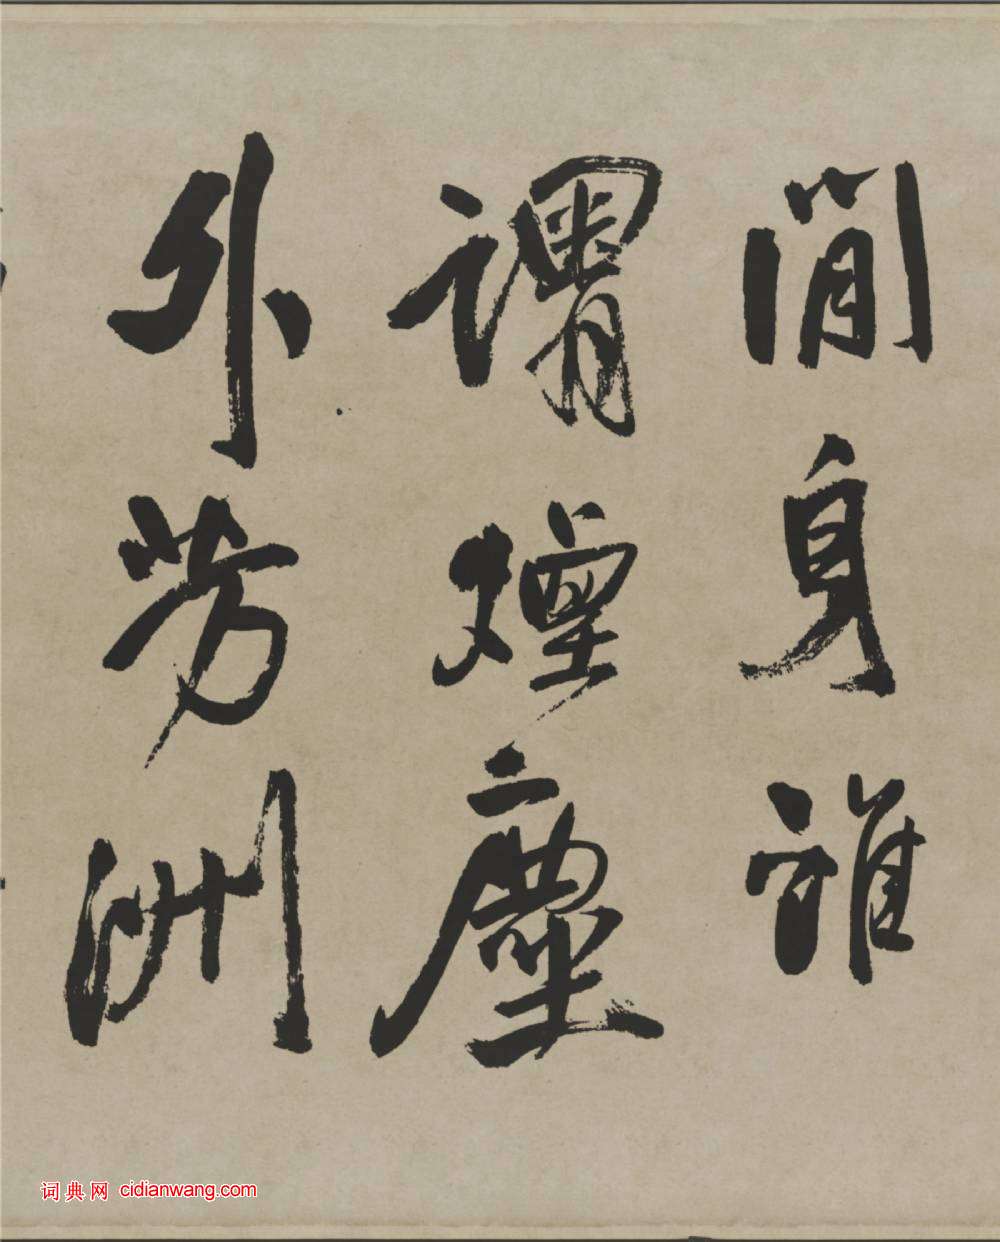 閒身誰
謂煙塵
外芳洲
词典网 cidianwang.com